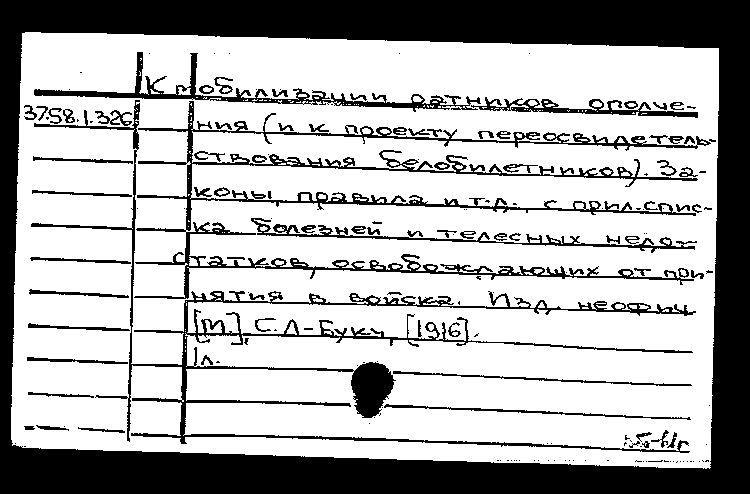 К мобилизации ратников ополче-
37.58.1.326
ния (и к проекту переосвидетель-
ствования белобилетников). За-
коны, правила и т.д., с прил. спис-
ка болезней и телесных недо-
статков, освобождающих от при-
нятия в войска. Изд. неофиц.
[М.], С. Л-Букч, [1916].
1л.